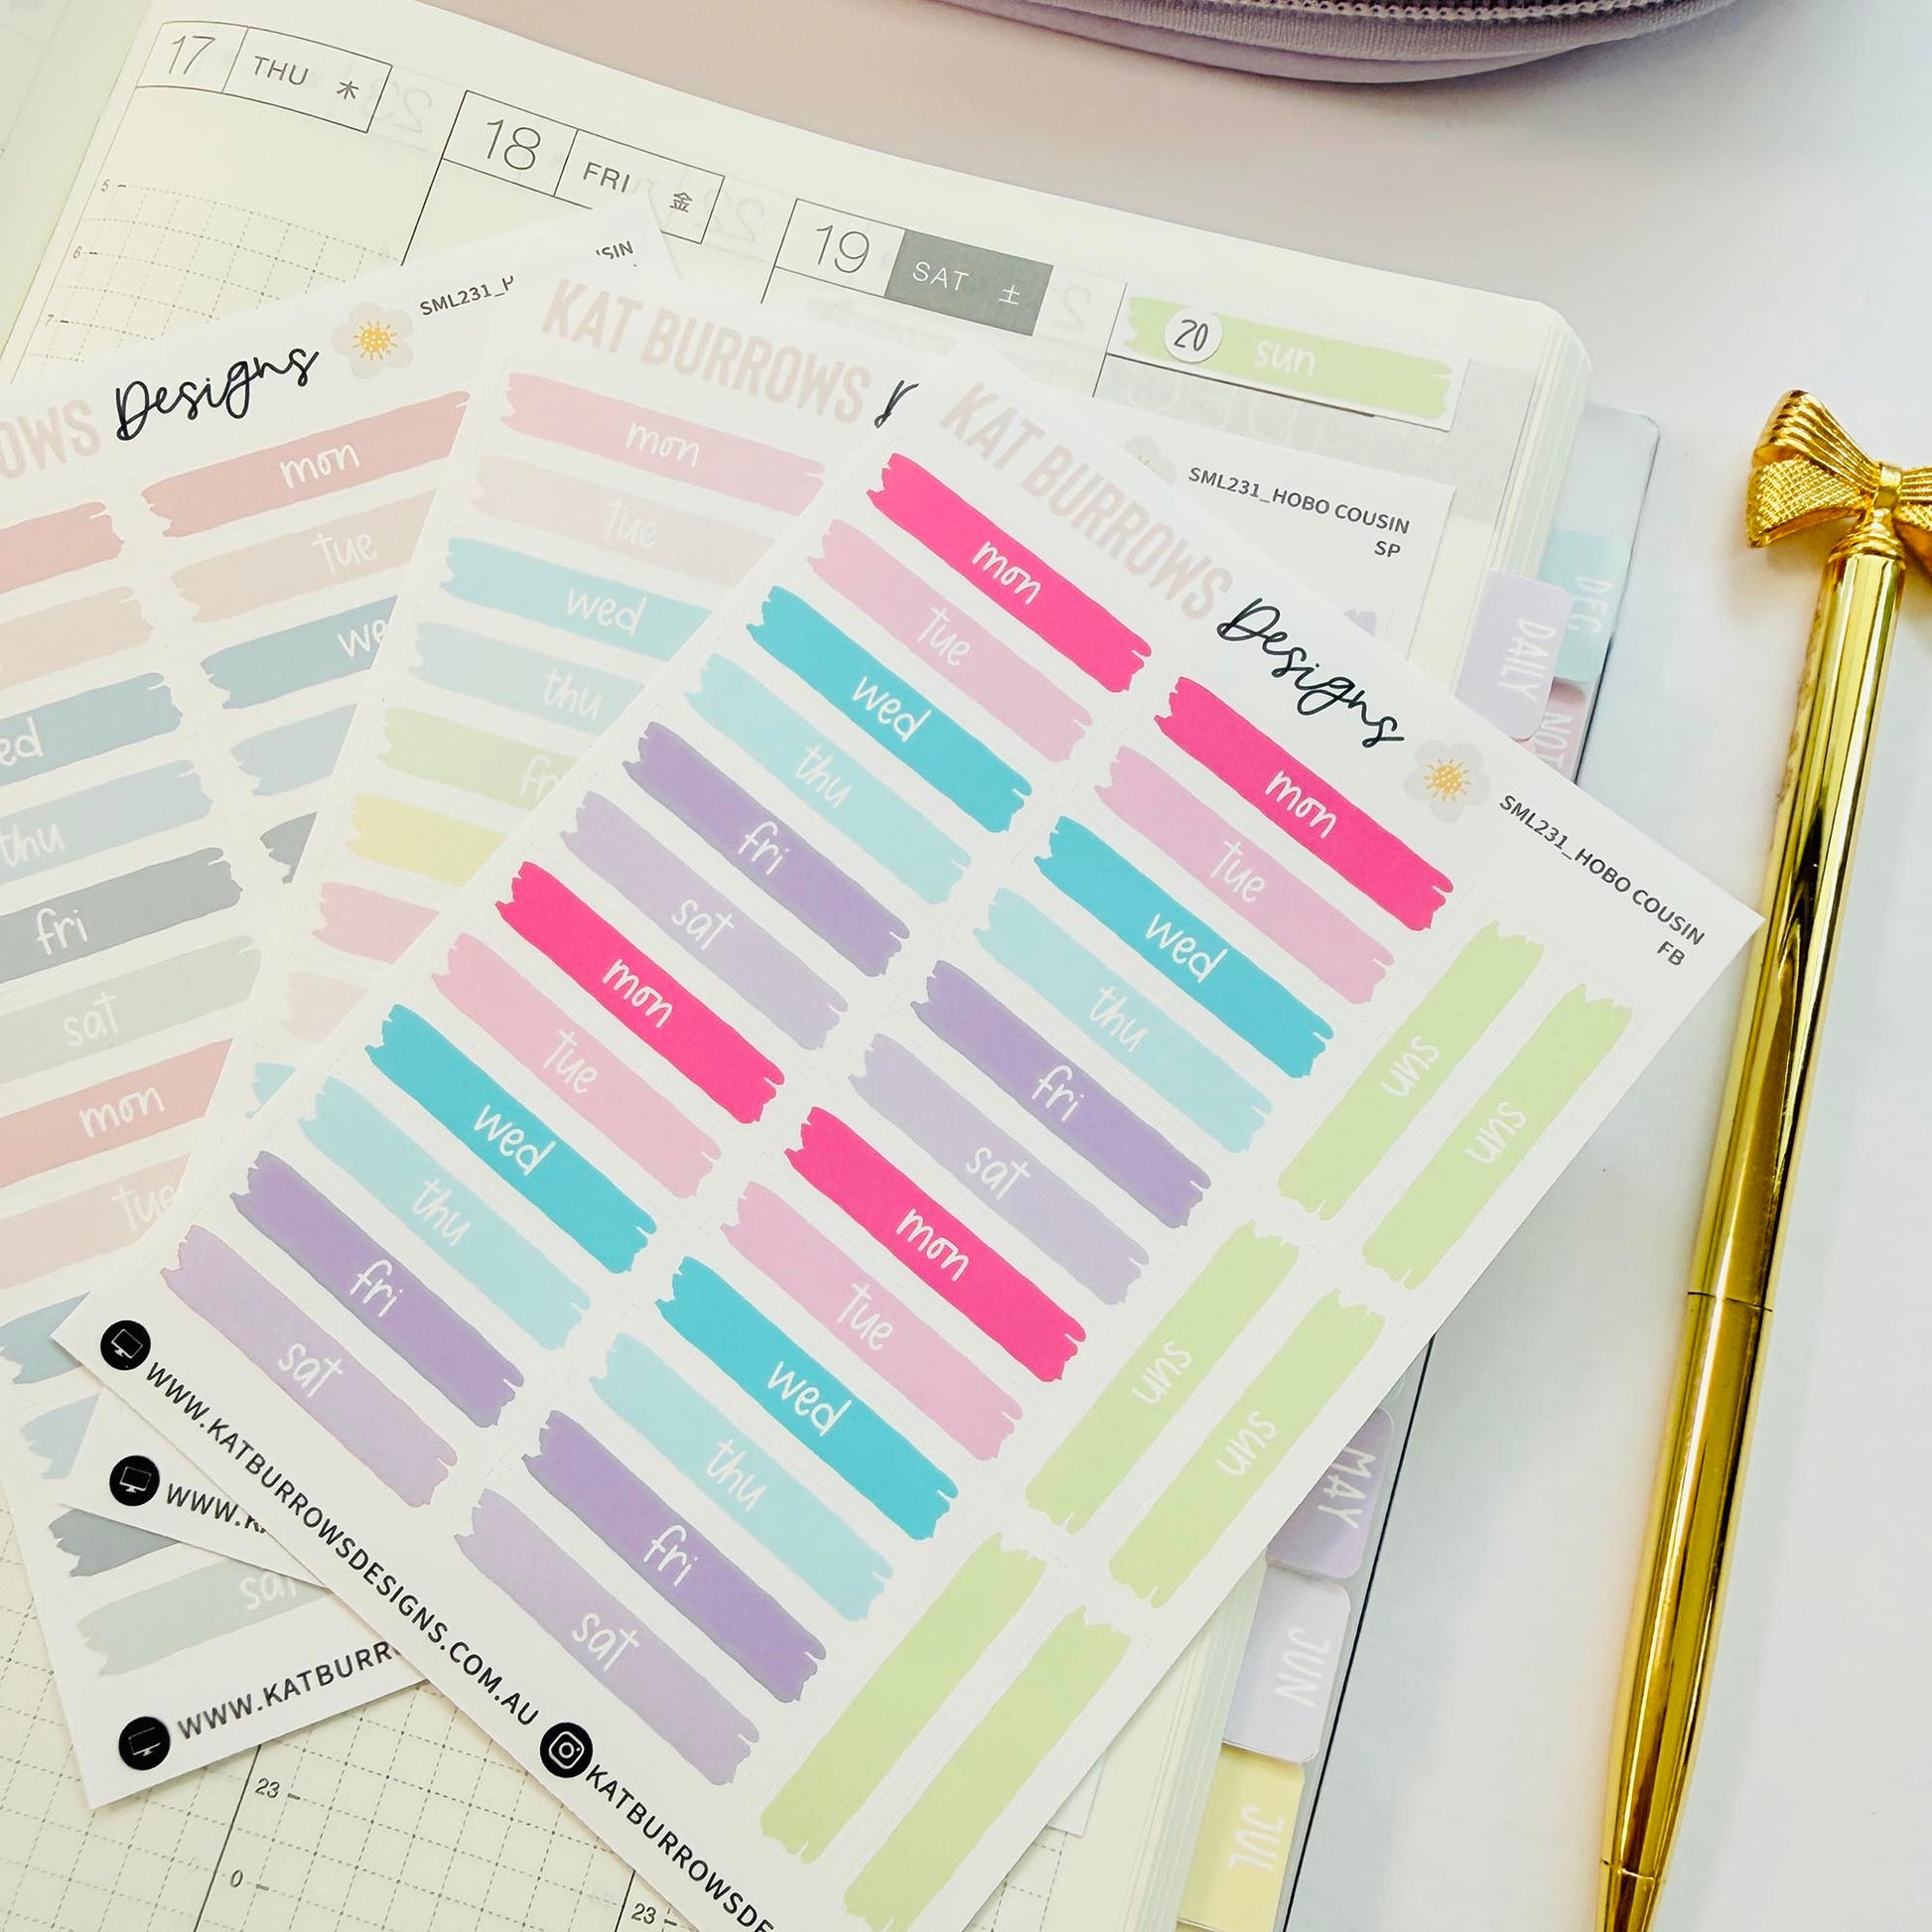 17 THU 木
18 FRI 金
19 SAT 土
20 sun
SML231_H
Designs
OWS
mon
tue
we
ed
thu
fri
sat
mon
tue
sat
WWW.KATBURR
KAT BURROWS
mon
tue
wed
thu
fri
WWW.K
SML231_HOBO COUSIN
SP
KAT BURROWS Designs
SML231_HOBO COUSIN
FB
mon
tue
wed
thu
fri
sat
mon
tue
wed
thu
fri
sat
mon
tue
wed
thu
fri
sat
mon
tue
wed
thu
fri
sat
sun
sun
sun
sun
WWW.KATBURROWSDESIGNS.COM.AU
KATBURROWSDE
DEC
DAILY
NOT
MAY
JUN
JUL
5
6
7
23
0
23